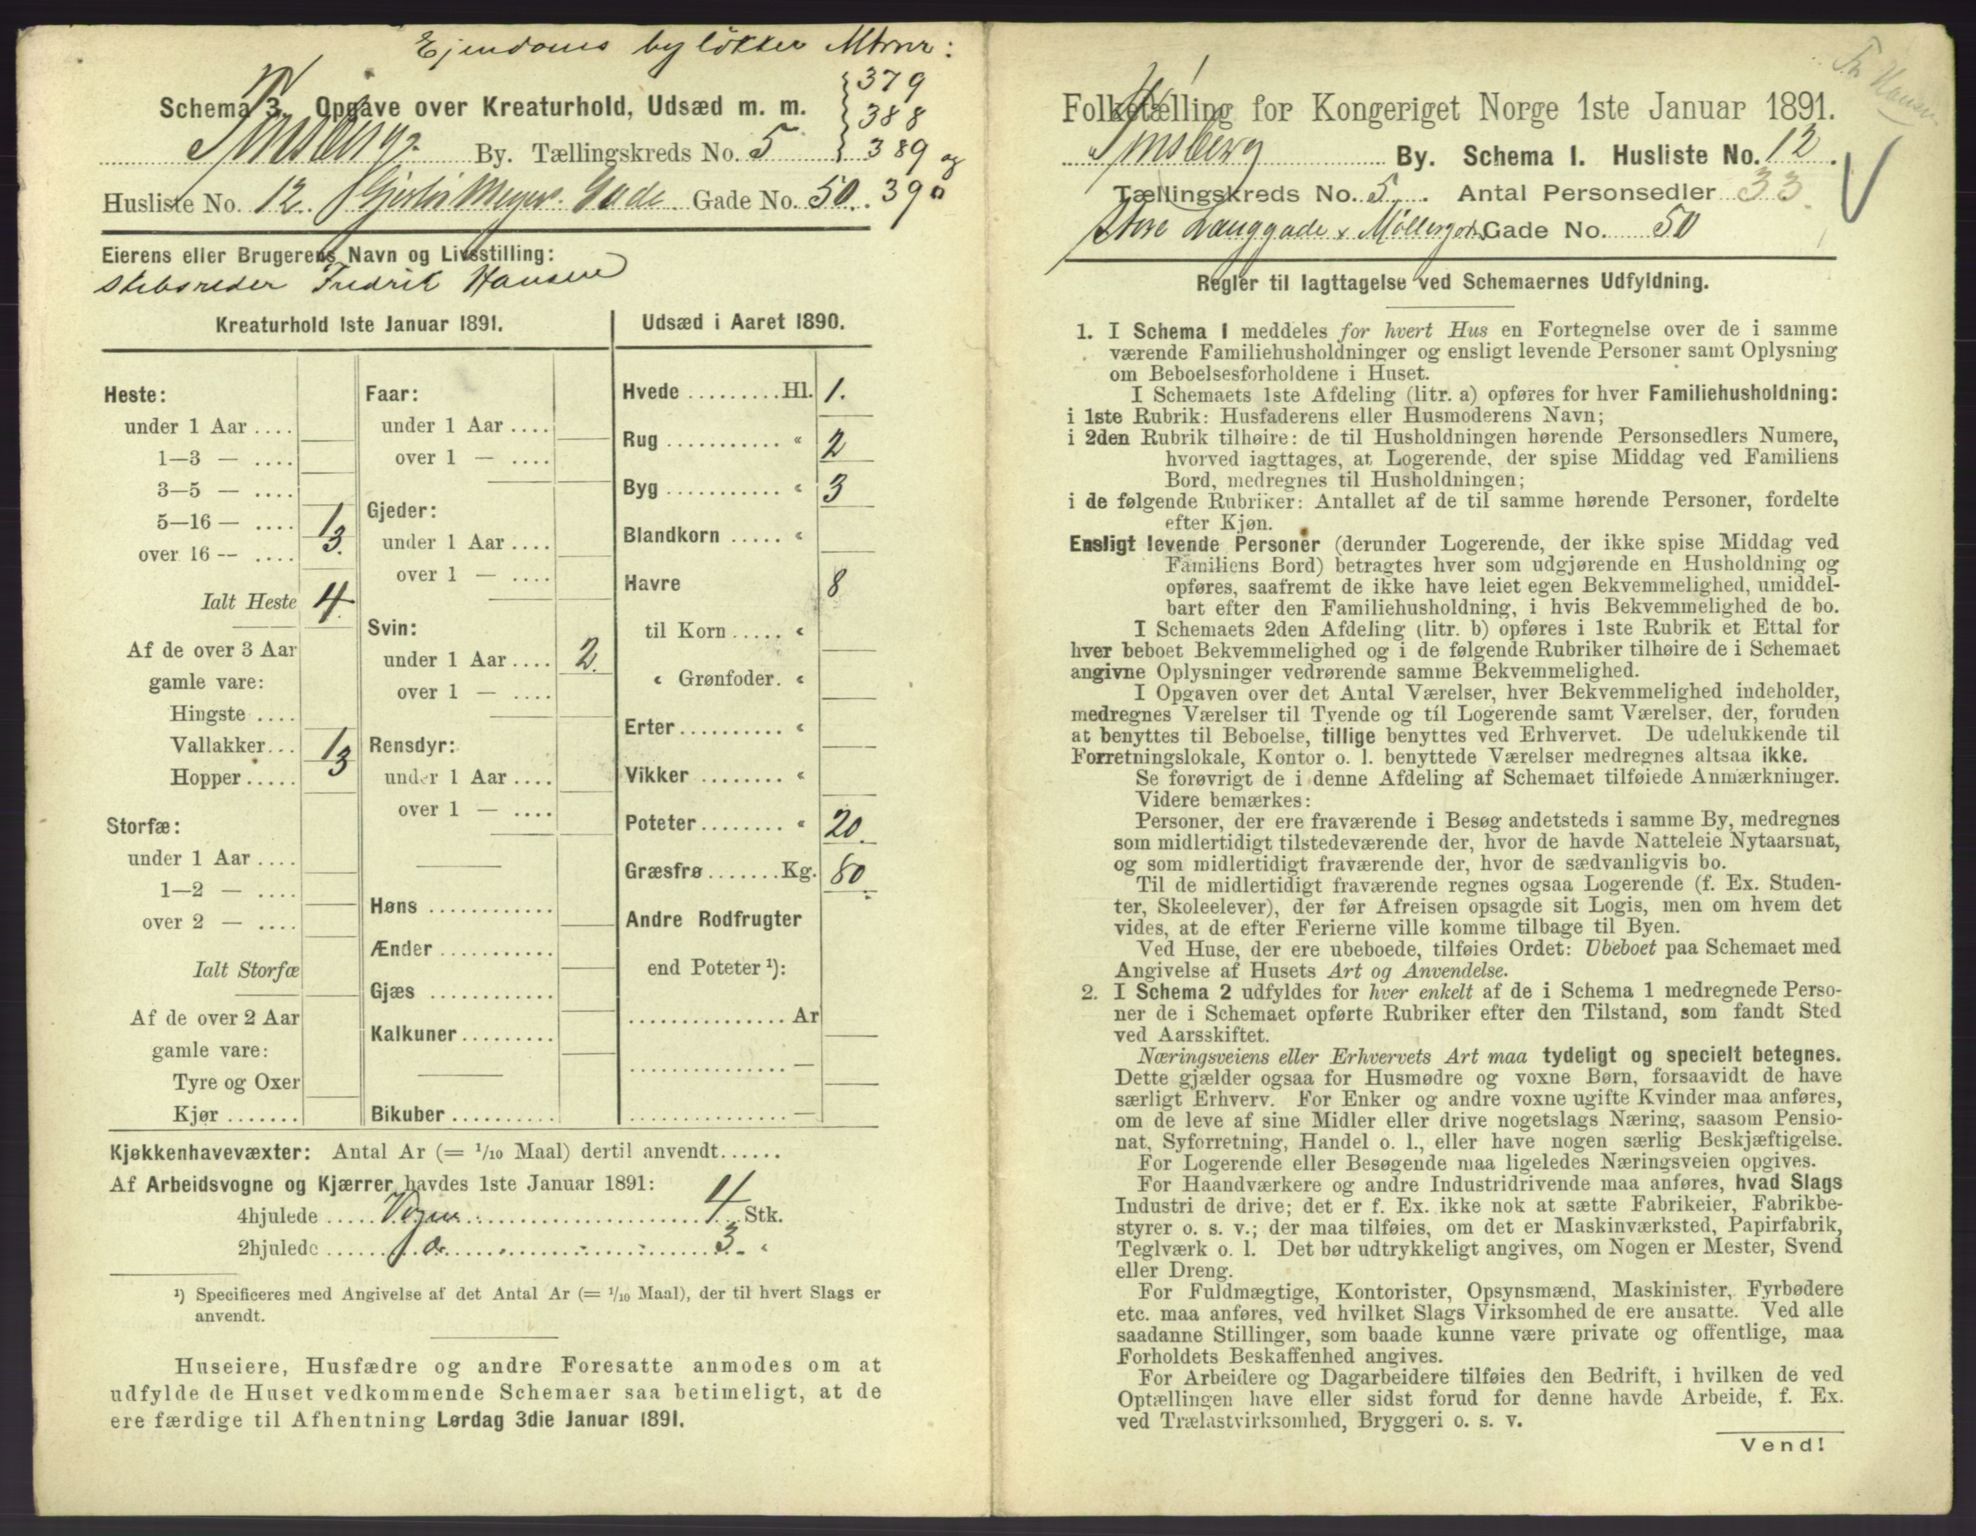 Ejendoms byløkker Mtrnr:
379
388
389 og
390
Schema 3. Opgave over Kreaturhold, Udsæd m. m.
Tønsberg By. Tællingskreds No. 5
Husliste No. 12. Gade No. 50.
Eierens eller Brugerens Navn og Livsstilling:
Skibsreder Fredrik Hansen
Kreaturhold 1ste Januar 1891.
Heste:
under 1 Aar ....
1—3 — ....
3—5 — ....
5—16 — .... 1
over 16 — .... 3.
Ialt Heste 4.
Af de over 3 Aar
gamle vare:
Hingste ....
Vallakker... 1
Hopper ..... 3
Storfæ:
under 1 Aar ....
1—2 — ....
over 2 — ....
Ialt Storfæ
Af de over 2 Aar
gamle vare:
Tyre og Oxer
Kjør .......
Faar:
under 1 Aar ....
over 1 — ....
Gjeder:
under 1 Aar ....
over 1 — ....
Svin:
under 1 Aar .... 2.
over 1 — ....
Rensdyr:
under 1 Aar ....
over 1 — ....
Høns ............
Ænder ...........
Gjæs ............
Kalkuner .........
Bikuber ..........
Udsæd i Aaret 1890.
Hvede ......... Hl. 1.
Rug ........... « 2
Byg ........... « 3
Blandkorn ..... «
Havre 8
til Korn ..... «
« Grønfoder. «
Erter .......... «
Vikker ........ «
Poteter ........ « 20.
Græsfrø ....... Kg. 80
Andre Rodfrugter
end Poteter ¹):
............... Ar
............... —
............... —
Kjøkkenhavevæxter: Antal Ar (= 1/10 Maal) dertil anvendt......
Af Arbeidsvogne og Kjærrer havdes 1ste Januar 1891:
4hjulede ..... 4 Stk.
2hjulede ..... 3. «
¹) Specificeres med Angivelse af det Antal Ar (= 1/10 Maal), der til hvert Slags er
anvendt.
Huseiere, Husfædre og andre Foresatte anmodes om at
udfylde de Huset vedkommende Schemaer saa betimeligt, at de
ere færdige til Afhentning Lørdag 3die Januar 1891.
Fr Hansen
Folketælling for Kongeriget Norge 1ste Januar 1891.
Tønsberg By. Schema 1. Husliste No. 12.
Tællingskreds No. 5. Antal Personsedler 33.
Store Langgade & Møllergd. Gade No. 50
Regler til Iagttagelse ved Schemaernes Udfyldning.
1. I Schema 1 meddeles for hvert Hus en Fortegnelse over de i samme
værende Familiehusholdninger og ensligt levende Personer samt Oplysning
om Beboelsesforholdene i Huset.
I Schemaets 1ste Afdeling (litr. a) opføres for hver Familiehusholdning:
i 1ste Rubrik: Husfaderens eller Husmoderens Navn;
i 2den Rubrik tilhøire: de til Husholdningen hørende Personsedlers Numere,
hvorved iagttages, at Logerende, der spise Middag ved Familiens
Bord, medregnes til Husholdningen;
i de følgende Rubriker: Antallet af de til samme hørende Personer, fordelte
efter Kjøn.
Ensligt levende Personer (derunder Logerende, der ikke spise Middag ved
Familiens Bord) betragtes hver som udgjørende en Husholdning og
opføres, saafremt de ikke have leiet egen Bekvemmelighed, umiddel-
bart efter den Familiehusholdning, i hvis Bekvemmelighed de bo.
I Schemaets 2den Afdeling (litr. b) opføres i 1ste Rubrik et Ettal for
hver beboet Bekvemmelighed og i de følgende Rubriker tilhøire de i Schemaet
angivne Oplysninger vedrørende samme Bekvemmelighed.
I Opgaven over det Antal Værelser, hver Bekvemmelighed indeholder,
medregnes Værelser til Tyende og til Logerende samt Værelser, der, foruden
at benyttes til Beboelse, tillige benyttes ved Erhvervet. De udelukkende til
Forretningslokale, Kontor o. l. benyttede Værelser medregnes altsaa ikke.
Se forøvrigt de i denne Afdeling af Schemaet tilføiede Anmærkninger.
Videre bemærkes:
Personer, der ere fraværende i Besøg andetsteds i samme By, medregnes
som midlertidigt tilstedeværende der, hvor de havde Natteleie Nytaarsnat,
og som midlertidigt fraværende der, hvor de sædvanligvis bo.
Til de midlertidigt fraværende regnes ogsaa Logerende (f. Ex. Studen-
ter, Skoleelever), der før Afreisen opsagde sit Logis, men om hvem det
vides, at de efter Ferierne ville komme tilbage til Byen.
Ved Huse, der ere ubeboede, tilføies Ordet: Ubeboet paa Schemaet med
Angivelse af Husets Art og Anvendelse.
2. I Schema 2 udfyldes for hver enkelt af de i Schema 1 medregnede Perso-
ner de i Schemaet opførte Rubriker efter den Tilstand, som fandt Sted
ved Aarsskiftet.
Næringsveiens eller Erhvervets Art maa tydeligt og specielt betegnes.
Dette gjælder ogsaa for Husmødre og voxne Børn, forsaavidt de have
særligt Erhverv. For Enker og andre voxne ugifte Kvinder maa anføres,
om de leve af sine Midler eller drive nogetslags Næring, saasom Pensio-
nat, Syforretning, Handel o. l., eller have nogen særlig Beskjæftigelse.
For Logerende eller Besøgende maa ligeledes Næringsveien opgives.
For Haandværkere og andre Industridrivende maa anføres, hvad Slags
Industri de drive; det er f. Ex. ikke nok at sætte Fabrikeier, Fabrikbe-
styrer o. s. v.; der maa tilføies, om det er Maskinværksted, Papirfabrik,
Teglværk o. l. Det bør udtrykkeligt angives, om Nogen er Mester, Svend
eller Dreng.
For Fuldmægtige, Kontorister, Opsynsmænd, Maskinister, Fyrbødere
etc. maa anføres, ved hvilket Slags Virksomhed de ere ansatte. Ved alle
saadanne Stillinger, som baade kunne være private og offentlige, maa
Forholdets Beskaffenhed angives.
For Arbeidere og Dagarbeidere tilføies den Bedrift, i hvilken de ved
Optællingen have eller sidst forud for denne havde Arbeide, f. Ex.
ved Trælastvirksomhed, Bryggeri o. s. v.
Vend!